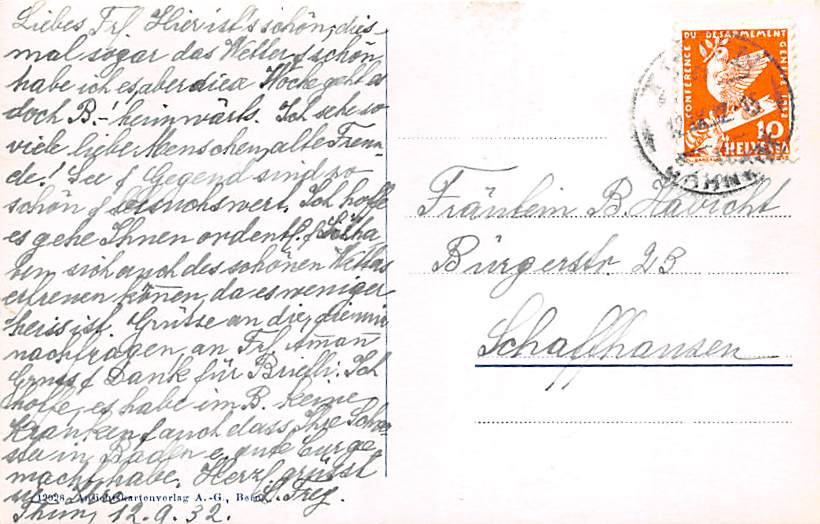 Liebes Frl. Hier ist's schön, dies
mal sogar das Wetter f schön
habe ich es, aber diese Woche geht es
doch B.-! heimwärts. Ich sehe so
viele liebe Menschen, alte Freun-
de! See f Gegend sind so
schön f besuchswert. Ich hoffe
es gehe Ihnen ordentl. f
sich auch des schönen Wetters
erfreuen können, da es weniger
heiss ist. Grüsse an die, die mir
nachfragen, an Frl. Aman̄
Gruss f Dank für Briefli. Ich
hoffe, es habe im B. keine
Kranken f auch dass Ihre Schwe-
ster in Baden e. gute Curge-
macht habe. Herzl. grüsst
Thun, 12.9.32.
12028 Ansichtskartenverlag A.-G., Bern
CONFERENCE DU DESARMEMENT GENEVE 1932
10
HELVETIA
Fräulein B. Habicht
Bürgerstr. 23
Schaffhausen